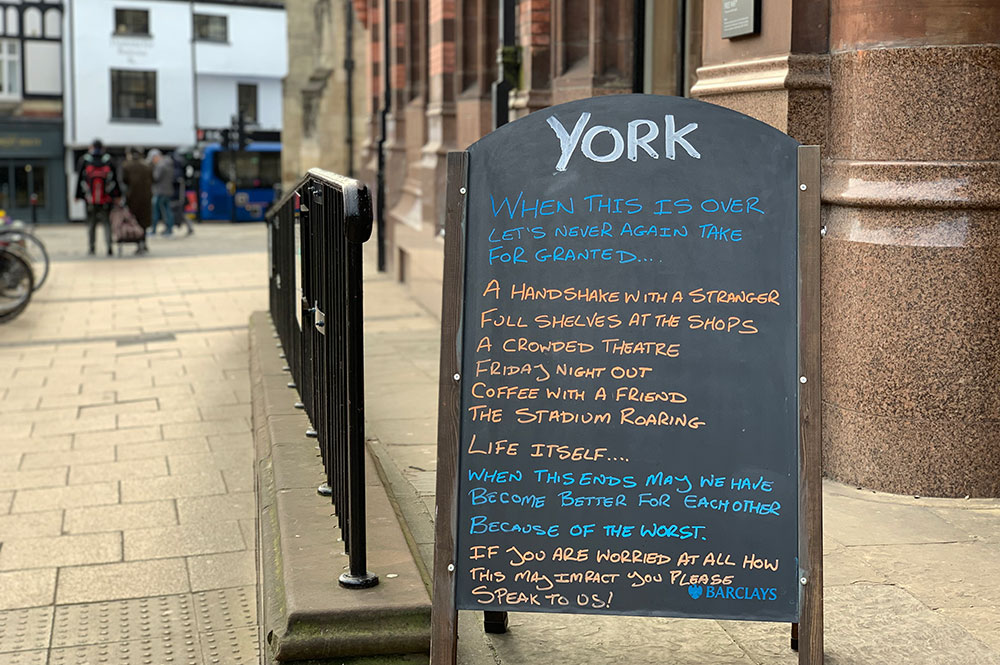 YORK
WHEN THIS IS OVER
LET'S NEVER AGAIN TAKE
FOR GRANTED....
A HANDSHAKE WITH A STRANGER
FULL SHELVES AT THE SHOPS
A CROWDED THEATRE
FRIDAY NIGHT OUT
COFFEE WITH A FRIEND
THE STADIUM ROARING
LIFE ITSELF....
WHEN THIS ENDS MAY WE HAVE
BECOME BETTER FOR EACH OTHER
BECAUSE OF THE WORST.
IF YOU ARE WORRIED AT ALL HOW
THIS MAY IMPACT YOU PLEASE
SPEAK TO US!
BARCLAYS